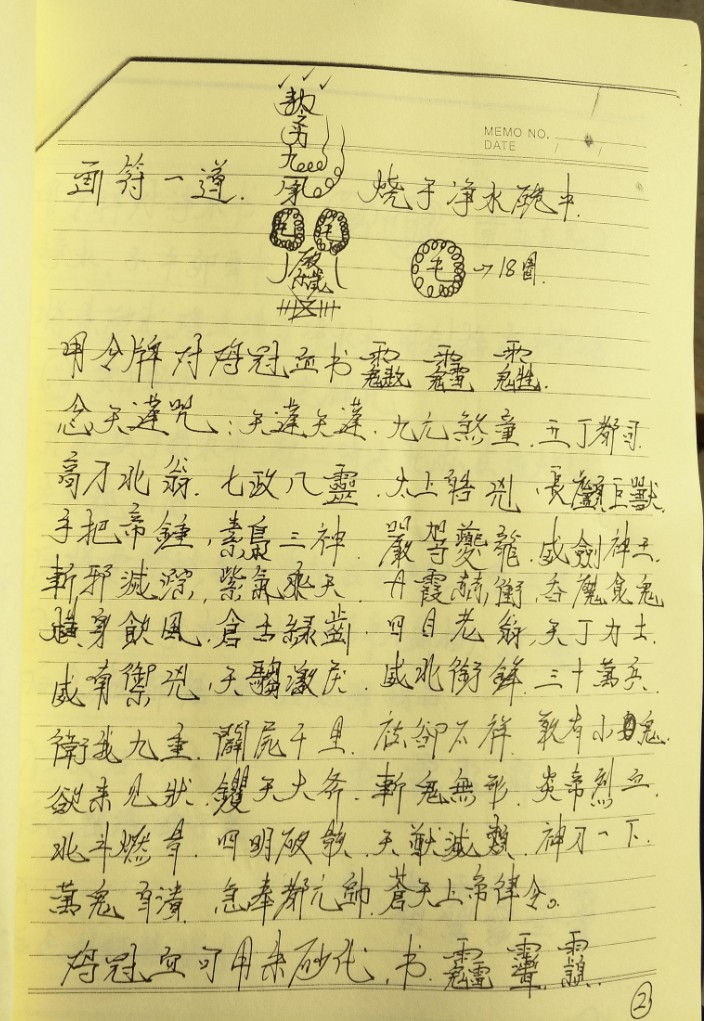 MEMO NO.
DATE / /
画符一道. 烧于净水碗中.
→18圈.
用令牌对鸡冠血书
念天蓬咒:天蓬天蓬.九元煞童.五丁都司.
高刁北翁.七政八靈.太上皓兇.長顱巨獸.
手把帝鐘,素梟三神.嚴駕夔龍.威劍神王.
斬邪滅踪,紫氣乘天.丹霞赫衝,吞魔食鬼
橫身飲風.倉舌綠齒.四目老翁,天丁力士.
威南禦兇,天騶激戾.威北銜鋒.三十萬兵.
衛我九重.關屍千里.祛卻不祥.敢有小鬼.
欲来见狀.钁天大斧.斬鬼無形.炎帝烈血.
北斗燃骨.四明破骸.天猷滅類.神刀一下.
萬鬼自潰.急奉都元帥.蒼天上帝律令。
鸡冠血可用朱砂代.书.
2